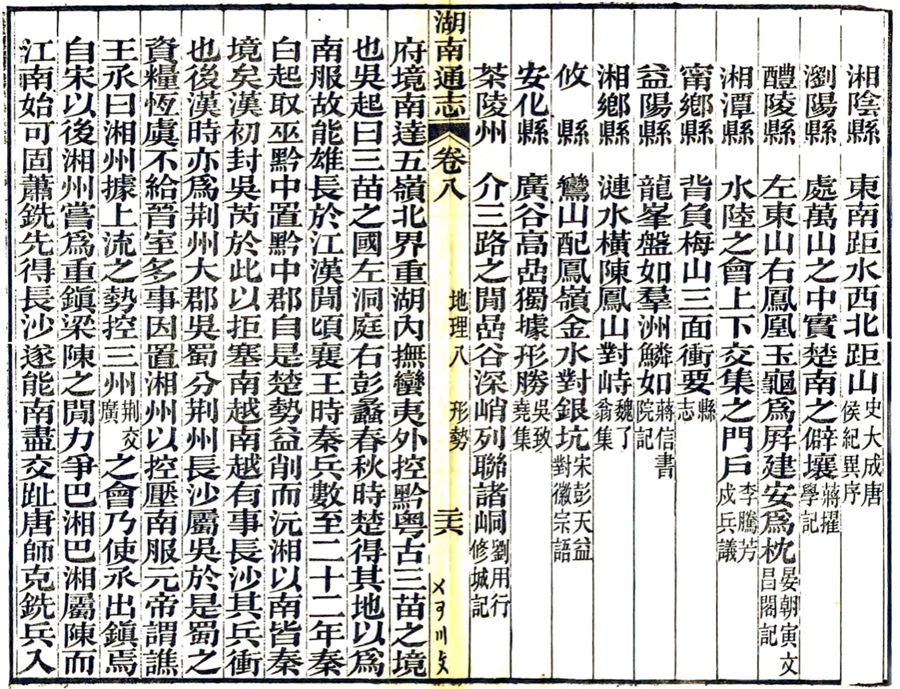 湘陰縣 東南距水西北距山史大成唐侯紀異序
瀏陽縣 處萬山之中實楚南之僻壤蔣擢學記
醴陵縣 左東山右鳳凰玉龜爲屛建安爲枕晏朝寅文昌閣記
湘潭縣 水陸之會上下交集之門戶李騰芳戍兵議
甯鄉縣 背負梅山三面衝要縣志
益陽縣 龍峯盤如羣洲鱗如蔣信書院記
湘鄉縣 漣水橫陳鳳山對峙魏了翁集
攸縣 鸞山配鳳嶺金水對銀坑宋彭天益對徽宗語
安化縣 廣谷高嵒獨據形勝吳致堯集
茶陵州 介三路之閒嵒谷深峭列聯諸峒劉用行修城記
湖南通志 卷八 地理八 形勢
府境南達五嶺北界重湖內撫蠻夷外控黔粤古三苗之境
也吳起曰三苗之國左洞庭右彭蠡春秋時楚得其地以爲
南服故能雄長於江漢閒頃襄王時秦兵數至二十二年秦
白起取巫黔中置黔中郡自是楚勢益削而沅湘以南皆秦
境矣漢初封吳芮於此以拒塞南越南越有事長沙其兵衝
也後漢時亦爲荆州大郡吳蜀分荆州長沙屬吳於是蜀之
資糧恆虞不給晉室多事因置湘州以控壓南服元帝謂譙
王氶曰湘州據上流之勢控三州荆交廣之會乃使氶出鎭焉
自宋以後湘州嘗爲重鎭梁陳之閒力爭巴湘巴湘屬陳而
江南始可固蕭銑先得長沙遂能南盡交趾唐師克銑兵入